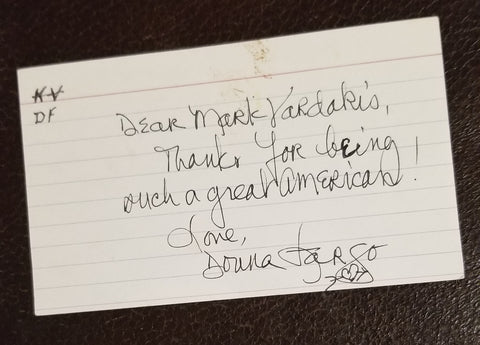 KV
DF
Dear Mark Vardakis,
Thanks for being
such a great American!
Love,
Donna Fargo